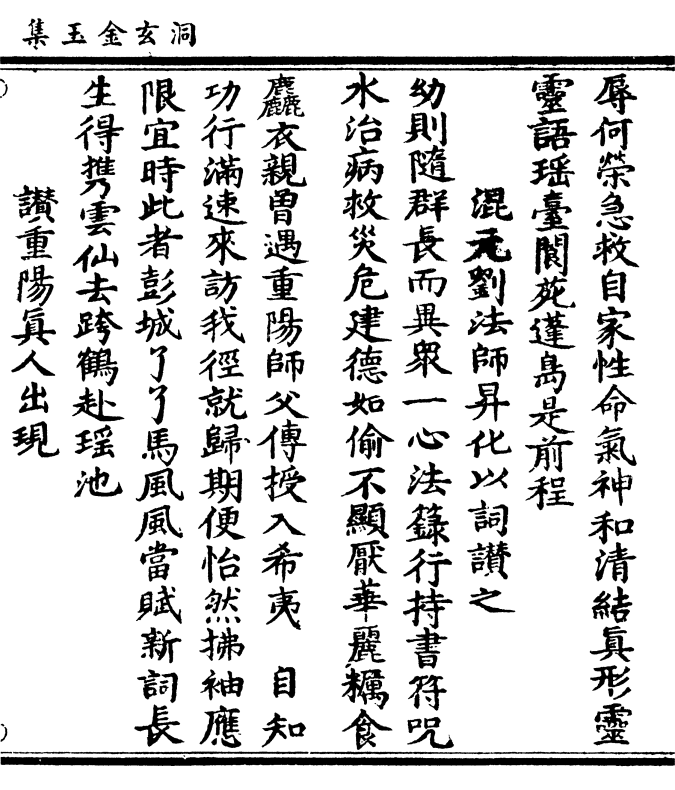 洞玄金玉集
辱何榮急救自家性命氣神和清結眞形靈
靈語瑶臺閬苑蓬島是前程
混元劉法師昇化以詞讃之
幼則隨群長而異衆一心法籙行持書符咒
水治病救災危建德如偷不顯厭華麗糲食
麤衣親曽遇重陽師父傳授入希夷　自知
功行滿速來訪我徑就歸期便怡然拂袖應
限宜時此者彭城了了馬風風當賦新詞長
生得攜雲仙去跨鶴赴瑶池
讃重陽眞人出現